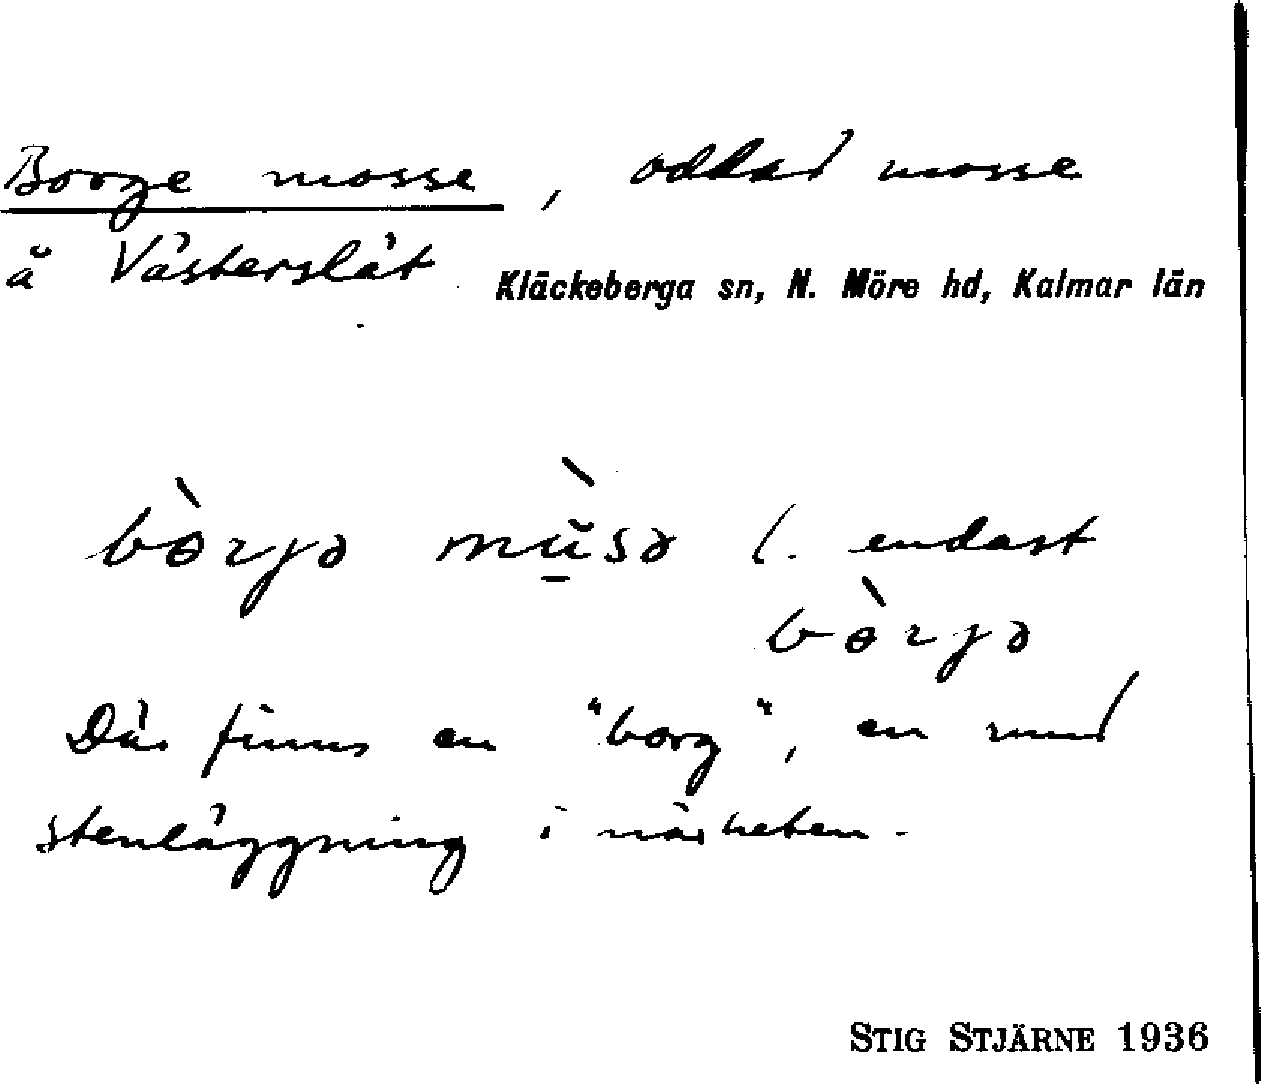 Borge mosse, odlad mosse
å Västerslät Kläckeberga sn, N. Möre hd, Kalmar län
bòrjə mùsə l. endast
bòrjə
Där finns en "borg", en rund
stenläggning i närheten.
STIG STJÄRNE 1936